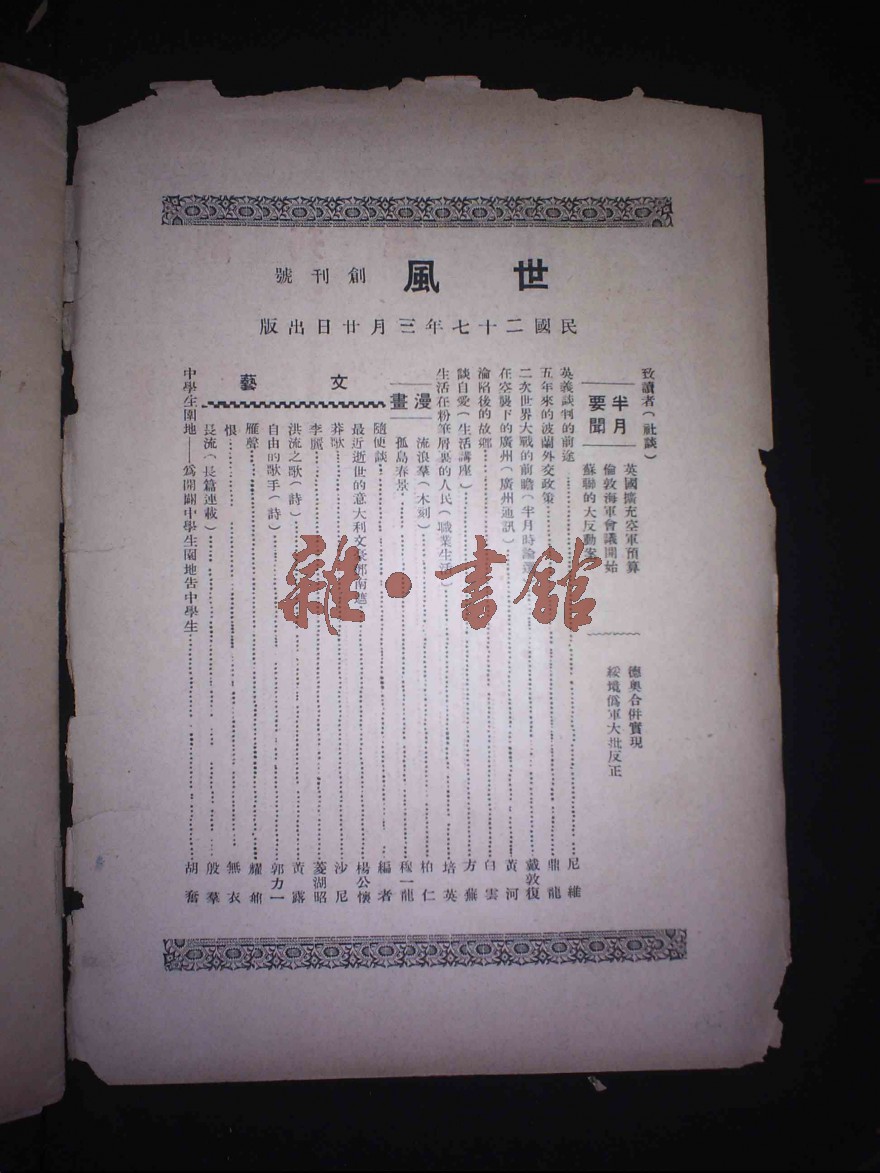 世風 創刊號
民國二十七年三月廿日出版
致讀者(社談)
半月要聞
英國擴充空軍預算
倫敦海軍會議開始
蘇聯的大反動案
德奧合併實現
綏境僞軍大批反正
英義談判的前途 尼維
五年來的波蘭外交政策 鼎龍
二次世界大戰的前瞻(半月時論 戴敦復
在空襲下的廣州(廣州通訊) 黃河
淪陷後的故鄉 白雲
談自愛(生活講座) 方蕪
生活在粉筆屑裏的人民(職業生活) 培英
漫畫
流浪羣(木刻) 柏仁
孤島春景 穆一龍
文藝
隨便談 編者
最近逝世的意大利文豪鄧南遮 楊公懷
莽歌 沙尼
李麗 菱湖昭
洪流之歌(詩) 黃露
自由的歌手(詩) 郭力一
雁聲 耀
恨 無衣
長流(長篇連載) 殷羣
中學生園地——爲開闢中學生園地告中學生 胡奮
雜·書館